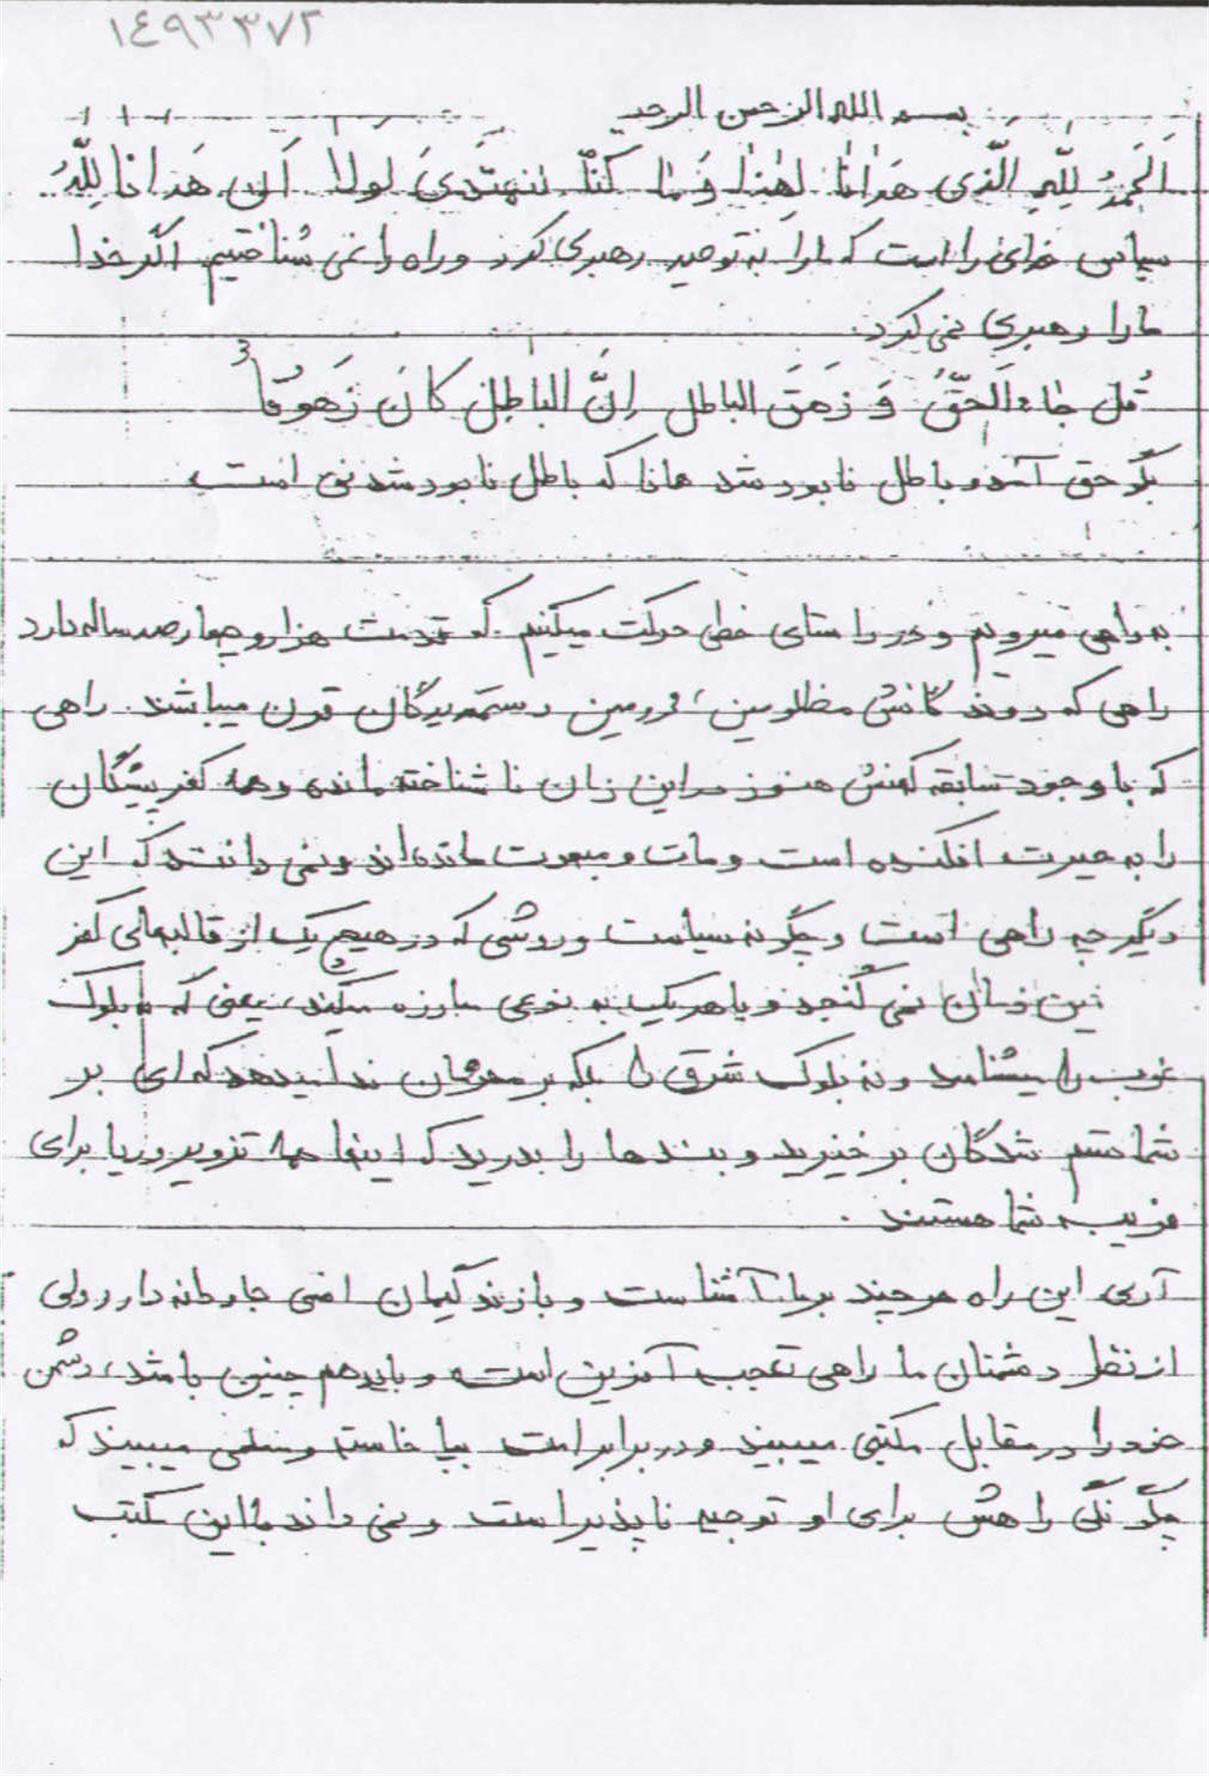 ۱۴۹۳۳۷۲
بسم الله الرحمن الرحیم
اَلحَمدُ لِلّٰهِ الَّذی هَدٰانٰا لِهٰذٰا وَ مٰا کُنّٰا لِنَهتَدیَ لَولا اَن هَدانا اللّٰهُ
سپاس خدای را است که ما را به توحید رهبری کرد و راه را نمی شناختیم اگر خدا
ما را رهبری نمی کرد.
قُل جٰاءَ الحَقُّ وَ زَهَقَ الباطل اِنَّ الباطِلَ کانَ زَهوُقاً
بگو حق آمد و باطل نابود شد همانا که باطل نابود شدنی است
به راهی میرویم و در راستای خطی حرکت میکنیم که قدمت هزار و چهارصد ساله دارد
راهی که روندگانش مظلومین، محرومین و ستمدیدگان قرون میباشند. راهی
که با وجود سابقه کهنش هنوز در این زمان ناشناخته مانده و همه کفرپیشگان
را به حیرت افکنده است و مات و مبهوت مانده اند و نمی دانند که این
دیگر چه راهی است و چگونه سیاست و روشی که در هیچ یک از قالبهای کفر
این زمان نمی گنجد و با هر یک به نوعی مبارزه میکند، یعنی که نه بلوک
غرب را میشناسد و نه بلوک شرق را بلکه بر سرشان ندا میدهد که ای بر
شما ستم شدگان برخیزید و بندها را بدرید که اینها همه تزویر و ریا برای
فریب شما هستند.
آری این راه هر چند بر ما آشناست و با زندگیمان انسی جاودانه دارد ولی
از نظر دشمنان ما راهی تعجب آمیزین است و باید هم چنین باشد، دشمن
خود را در مقابل مکتبی میبیند و در برابر امت بپا خاسته و مسلمی میبیند که
چگونگی راهش برای او توجیه ناپذیر است و نمی داند با این مکتب